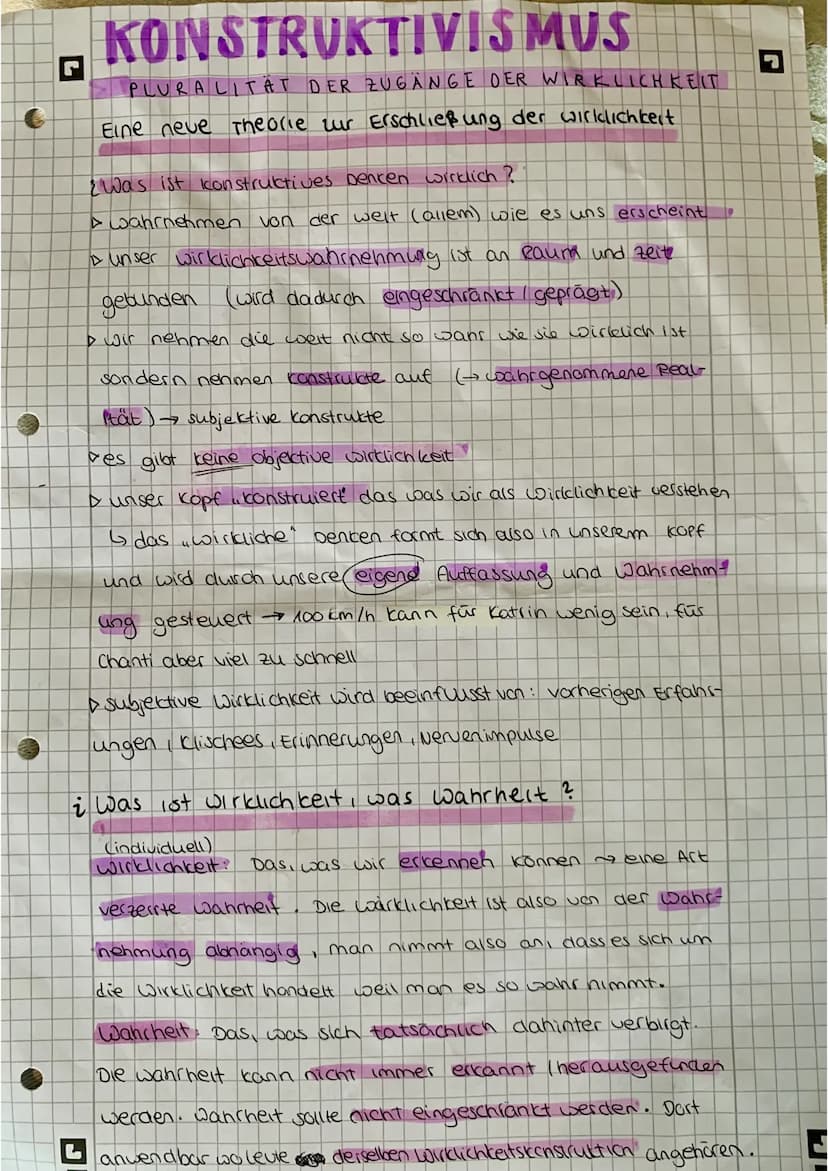 KONSTRUKTIVISMUS
PLURALITÄT DER ZUGÄNGE DER WIRKLICHKEIT
Eine neue Theorie zur Erschließung der Wirklichkeit
¿Was ist konstruktives Denken wirklich?
▷ wahrnehmen von der Welt (allem) wie es uns erscheint
▷ unser wirklichkeitswahrnehmung ist an Raum und Zeit
gebunden (wird dadurch eingeschränkt / geprägt)
▷ wir nehmen die Welt nicht so wahr wie sie wirklich ist
sondern nehmen Konstrukte auf (→ wahrgenommene Real-
ität) → subjektive Konstrukte
▷ es gibt keine objektive wirklichkeit
▷ unser Kopf "konstruiert" das was wir als wirklichkeit verstehen
↳ das "wirkliche" Denken formt sich also in unserem Kopf
und wird durch unsere eigene Auffassung und Wahrnehm-
ung gesteuert → 100 km/h kann für Katrin wenig sein, für
Chanti aber viel zu schnell
▷ subjektive Wirklichkeit wird beeinflusst von: vorherigen Erfahr-
ungen, Klischees, Erinnerungen, Nervenimpulse
¿ Was ist Wirklichkeit, was Wahrheit?
(individuell)
Wirklichkeit: Das, was wir erkennen können → eine Art
verzerrte Wahrheit. Die Wirklichkeit ist also von der Wahr-
nehmung abhängig, man nimmt also an, dass es sich um
die Wirklichkeit handelt weil man es so wahr nimmt.
Wahrheit: Das, was sich tatsächlich dahinter verbirgt.
Die Wahrheit kann nicht immer erkannt / herausgefunden
werden. Wahrheit sollte nicht eingeschränkt werden. Dort
anwendbar wo Leute derselben Wirklichkeitskonstruktion angehören.